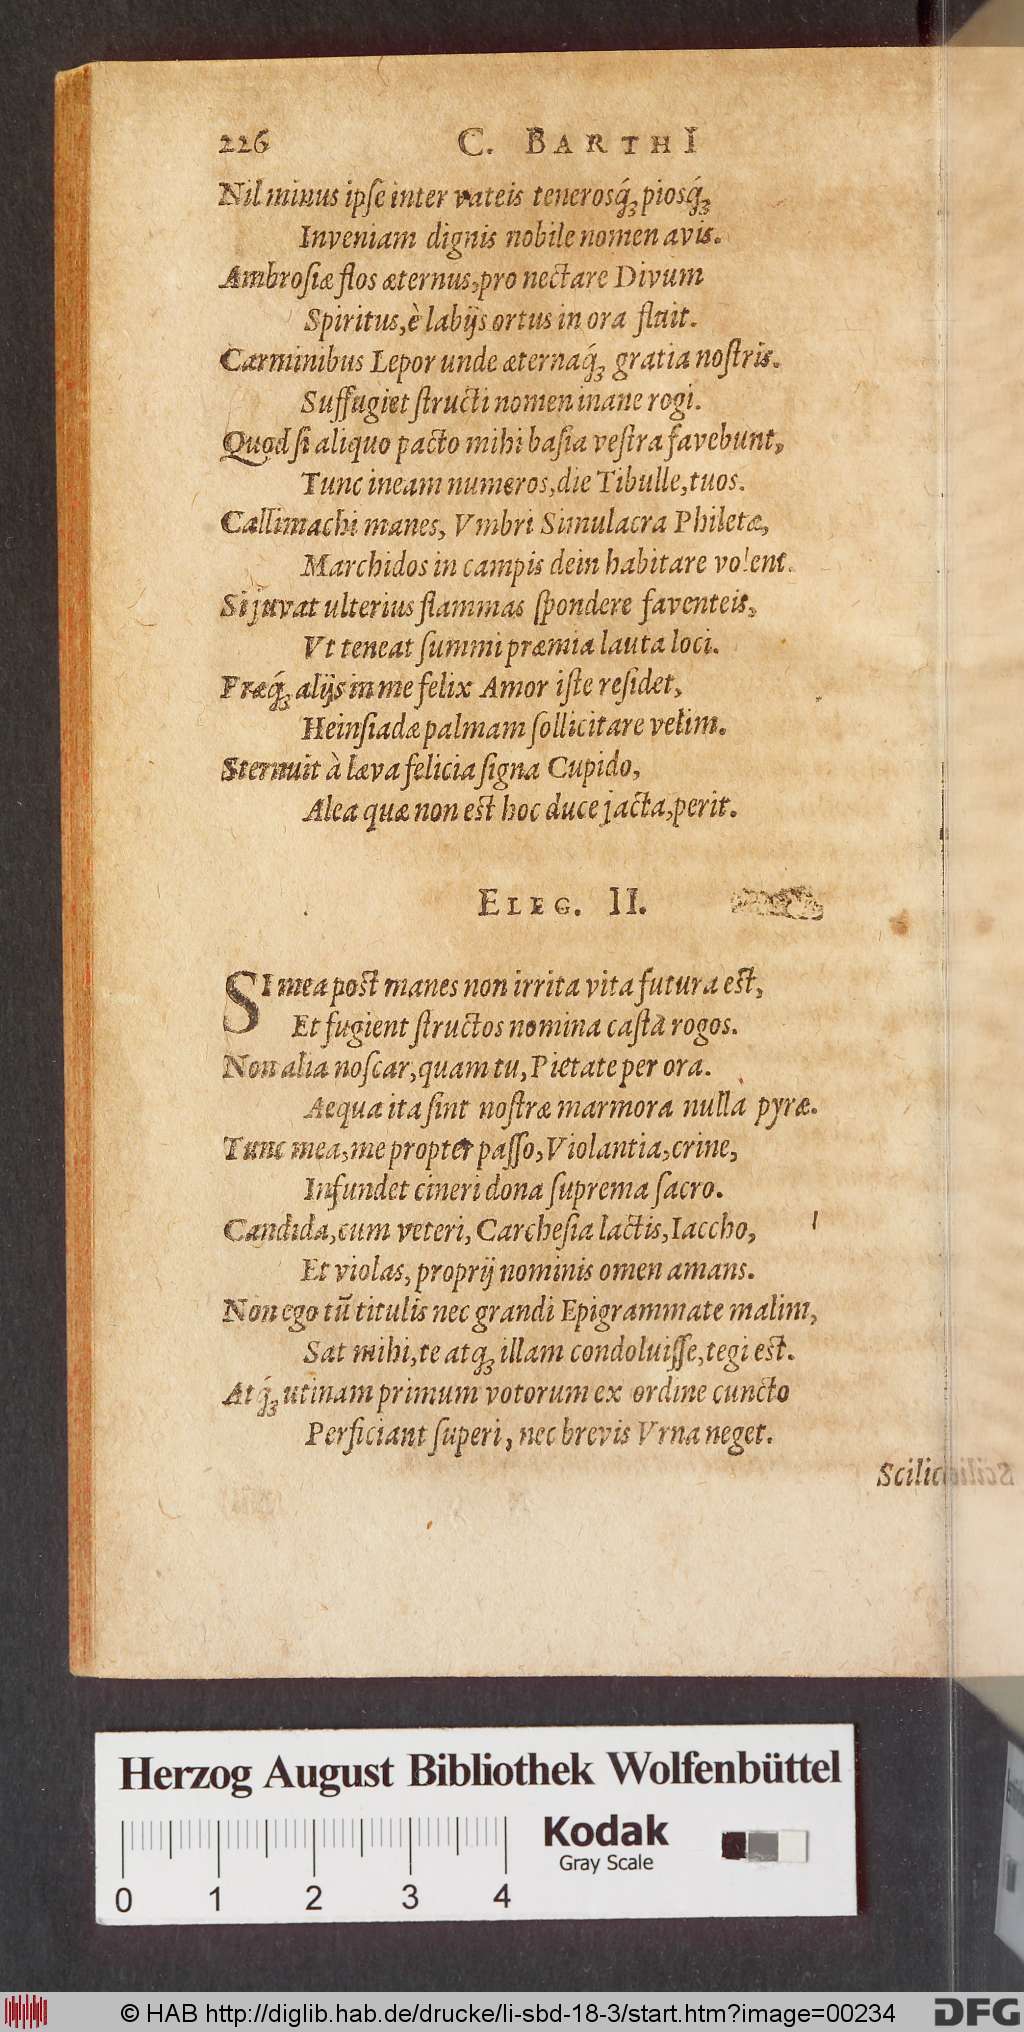 226 C. BARTHI
Nil minus ipſe inter vateis tenerosq́; piosq́;
Inveniam dignis nobile nomen avis.
Ambroſiæ flos æternus, pro nectare Divum
Spiritus, è labijs ortus in ora fluit.
Carminibus Lepor unde æternaq́; gratia noſtris.
Suffugiet ſtructi nomen inane rogi.
Quod ſi aliquo pacto mihi baſia veſtra favebunt,
Tunc ineam numeros, die Tibulle, tuos.
Callimachi manes, Vmbri Simulacra Philetæ,
Marchidos in campis dein habitare volent.
Si juvat ulterius flammas ſpondere faventeis,
Vt teneat ſummi præmia lauta loci.
Præq́; alijs in me felix Amor iſte reſidet,
Heinſiadæ palmam ſollicitare velim.
Sternuit à læva felicia ſigna Cupido,
Alea quæ non eſt hoc duce jacta, perit.
ELEG. II.
SI mea poſt manes non irrita vita futura eſt,
Et fugient ſtructos nomina caſta rogos.
Non alia noſcar, quam tu, Pietate per ora.
Aequa ita ſint noſtræ marmora nullà pyræ.
Tunc mea, me propter paſſo, Violantia, crine,
Infundet cineri dona ſuprema ſacro.
Candida, cum veteri, Carcheſia lactis, Iaccho,
Et violas, proprij nominis omen amans.
Non ego tū titulis nec grandi Epigrammate malim,
Sat mihi, te atq; illam condoluiſſe, tegi eſt.
Atq́; utinam primum votorum ex ordine cuncto
Perficiant ſuperi, nec brevis Vrna neget.
Scilic
Herzog August Bibliothek Wolfenbüttel
Kodak
Gray Scale
0 1 2 3 4
© HAB http://diglib.hab.de/drucke/li-sbd-18-3/start.htm?image=00234
DFG